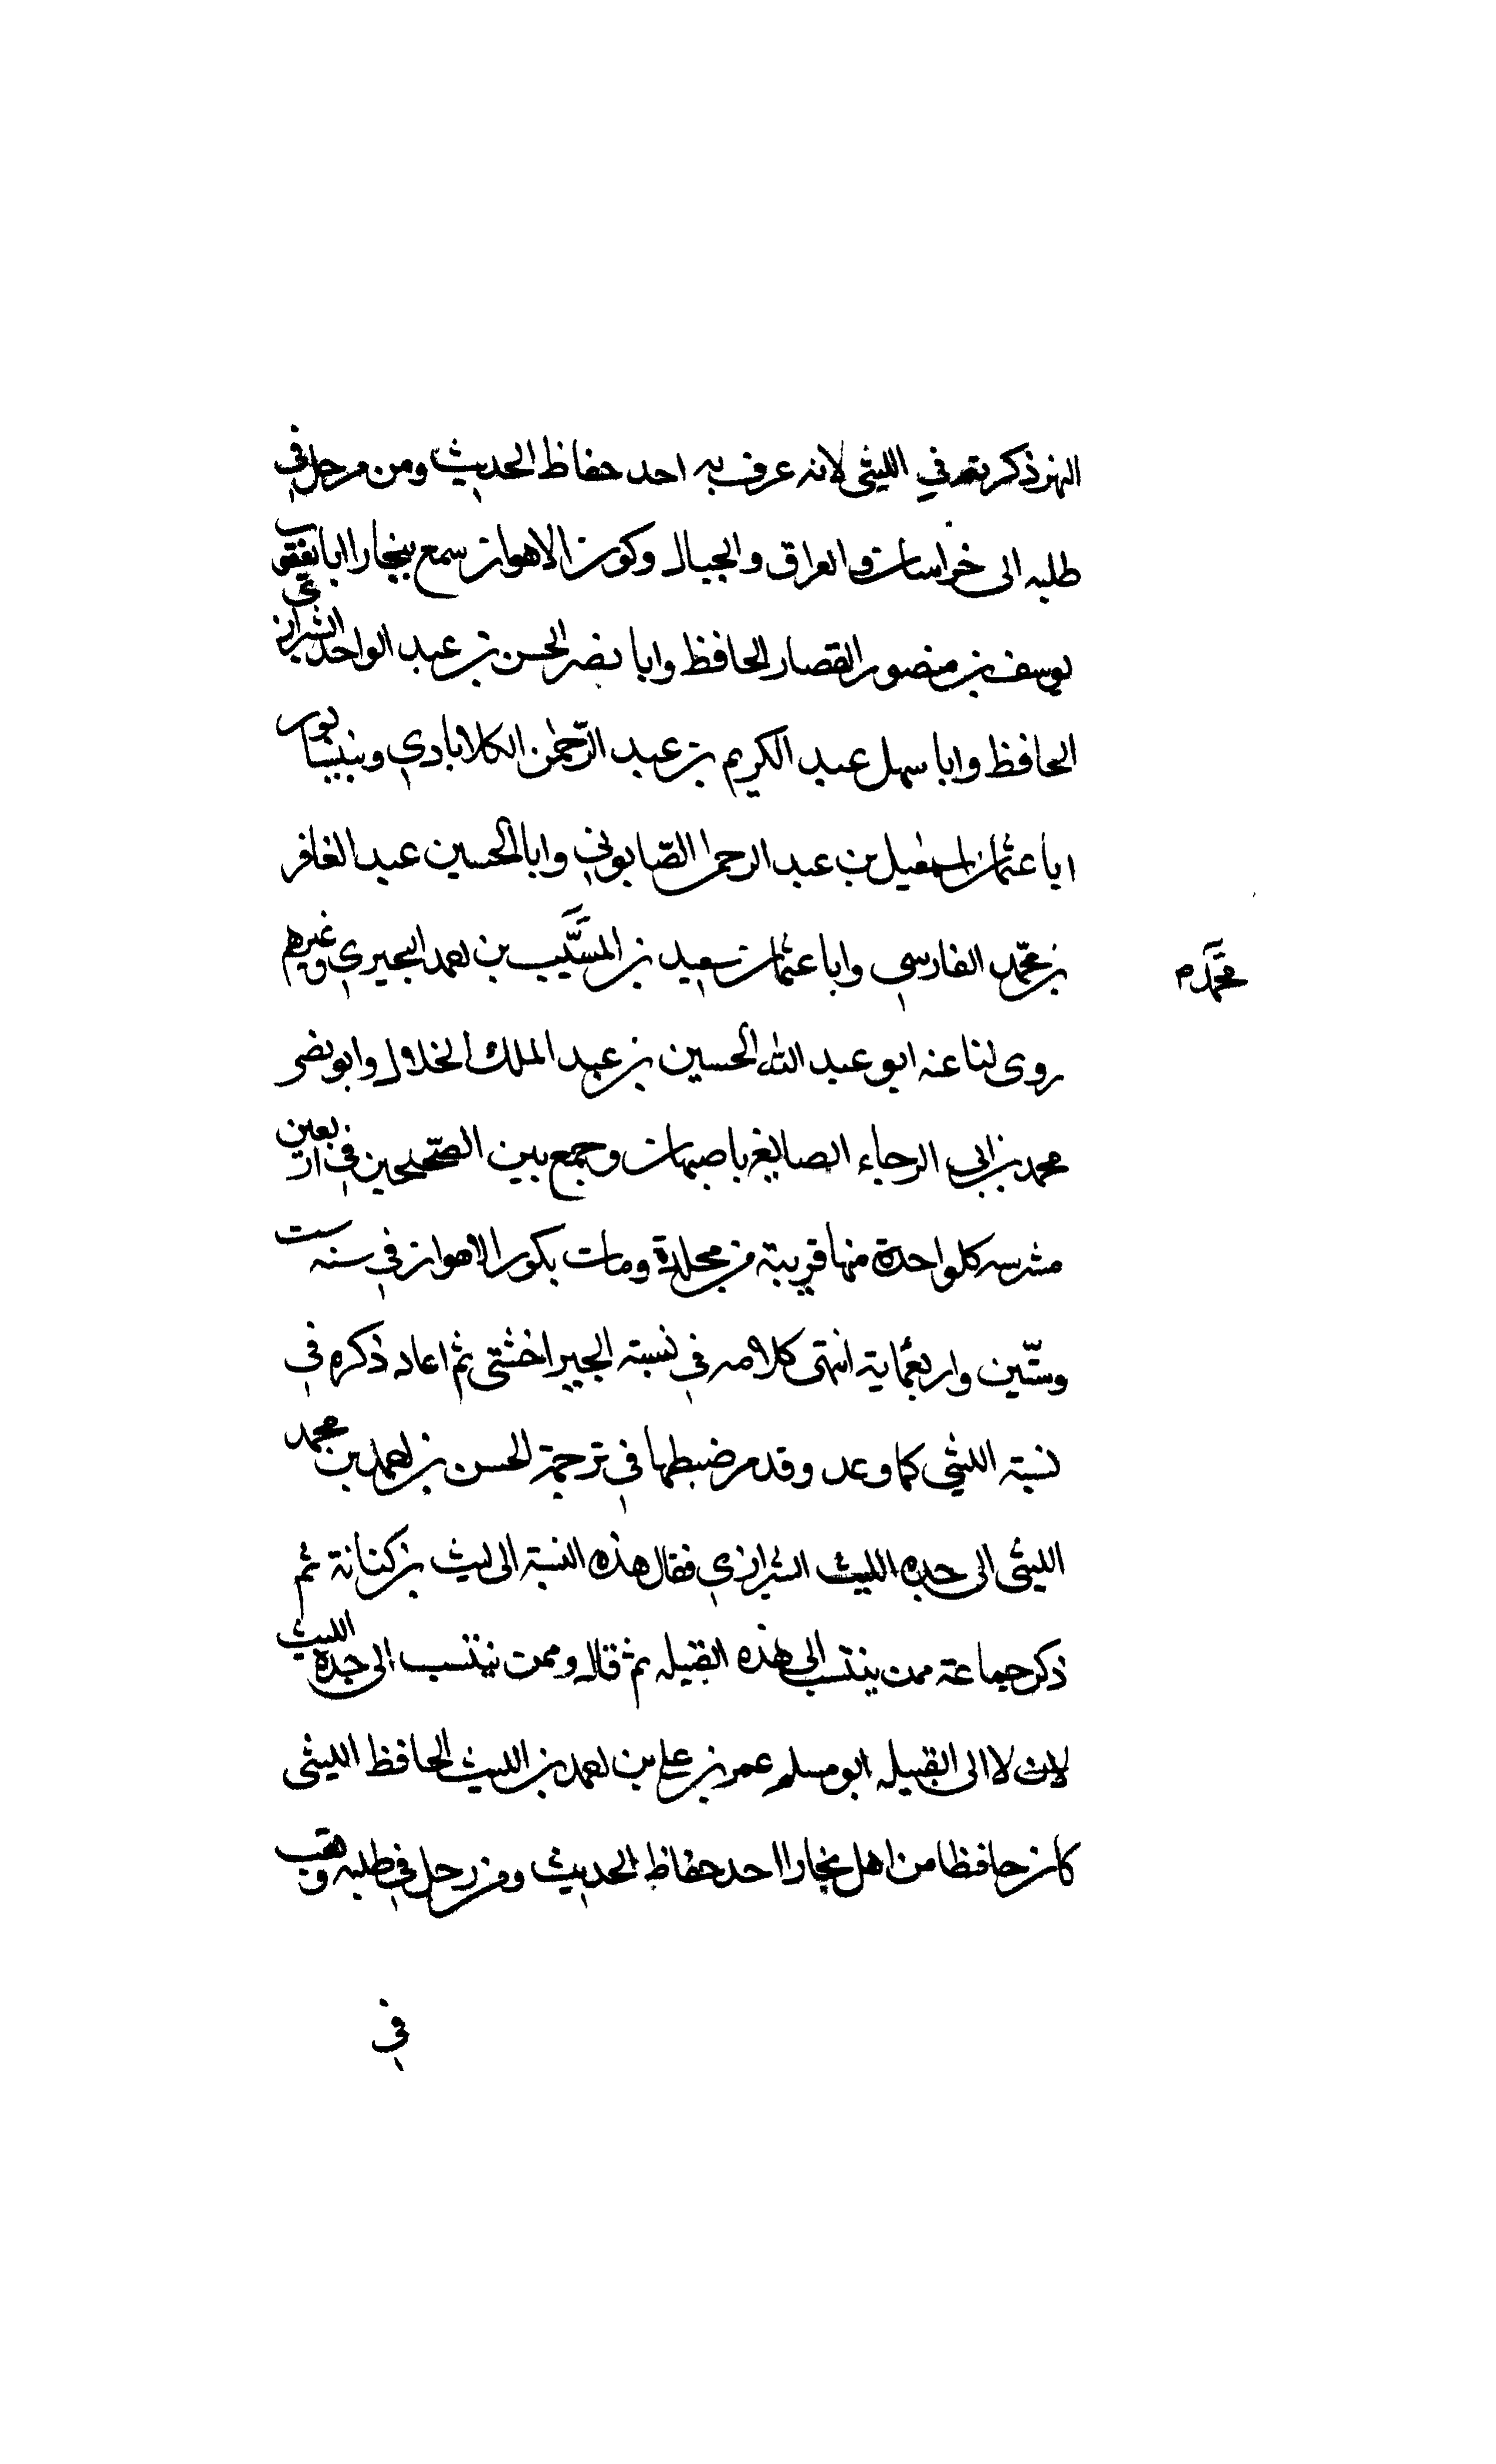 النهر ذكرته في الليثي لانه عرف به احد حفاظ الحديث ومن رحل في
طلبه الى خراسان والعراق والجبال وكور الاهواز سمع ببخارا ابا يعقوب
يوسف بن منصور القصار الحافظ وابا نصر الحسن بن عبد الواحد الشيرازي
الحافظ وابا سهل عبد الكريم بن عبد الرحمن الكلاباذي وبنيسابور
ابا عثمان اسمعيل بن عبد الرحمن الصّابوني وابا الحسين عبد الغافر
بن محمّد الفارسي وابا عثمان سعيد بن المسيَّب بن احمد البحيري وغيرهم
محمَّد م
روى لنا عنه ابو عبد الله الحسين بن عبد الملك الخلال وابو نصر
محمد بن ابي الرجاء الصايغ باصبهان وجمع بين الصّحيحين في اربعين
مشرسه كل واحدة منها قريبة من مجلدة ومات بكور الاهواز في سنه ست
وستّين واربعماية انتهى كلامه في نسبته الجيراخشتى ثم اعاد ذكره في
نسبته الليثي كما وعد وقد مر ضبطها في ترجمة الحسن بن احمد بن محمد
الليثى الى جده الليث الشيرازي فقال هذه النسبة الى ليث بن كنانة ثم
ذكر جماعة ممن ينتسب الى هذه القبيله ثم قال وممن ينتسب الى جده الليث
لا الى القبيله ابو مسلم عمر بن علي بن احمد بن الليث الحافظ الليثى
كان حافظا من اهل بخارا احد حفاظ الحديث ومن رحل في طلبه وتعب
في